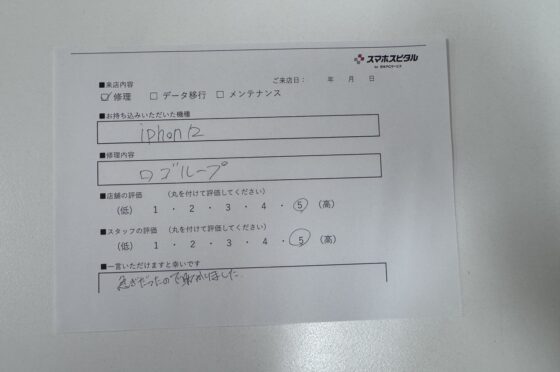 スマホスピタル
■来店内容
ご来店日： 年 月 日
☑ 修理 □ データ移行 □ メンテナンス
■お持ち込みいただいた機種
iphon12
■修理内容
ロゴループ
■店舗の評価 (丸を付けて評価してください)
(低) 1 ・ 2 ・ 3 ・ 4 ・ 5 (高)
■スタッフの評価 (丸を付けて評価してください)
(低) 1 ・ 2 ・ 3 ・ 4 ・ 5 (高)
■一言いただけますと幸いです
急ぎだったので助かりました.